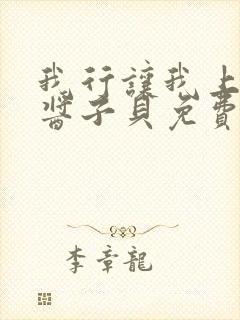 我行讓我上
醬子貝免費
李章龍